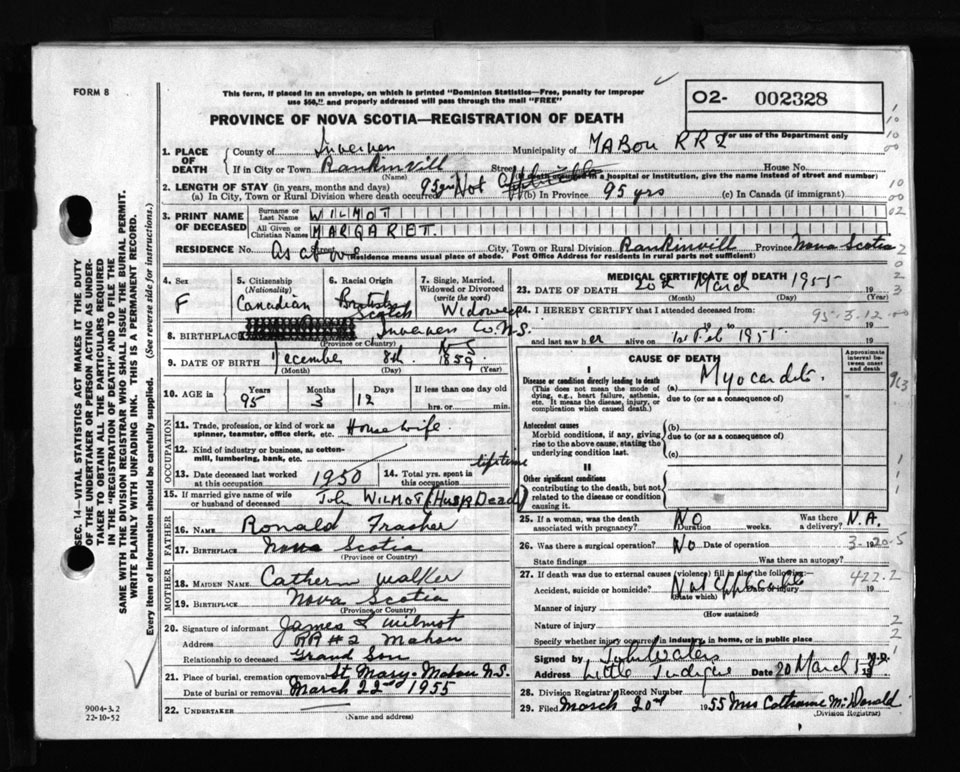 FORM 8
This form, if placed in an envelope, on which is printed "Dominion Statistics—Free, penalty for improper
use $50," and properly addressed will pass through the mail "FREE"
O2- 002328
For use of the Department only
PROVINCE OF NOVA SCOTIA—REGISTRATION OF DEATH
1. PLACE OF DEATH { County of Inverness Municipality of MABOU RR2
If in City or Town Rankinvill Street House No.
(Name) (If death occurred in a hospital or institution, give the name instead of street and number)
2. LENGTH OF STAY (in years, months and days)
(a) In City, Town or Rural Division where death occurred 95 yrs (b) In Province 95 yrs (c) In Canada (if immigrant)
3. PRINT NAME OF DECEASED { Surname or Last Name WILMOT
All Given or Christian Names MARGARET.
RESIDENCE No. As above Street City, Town or Rural Division Rankinvill Province Nova Scotia
(Residence means usual place of abode. Post Office Address for residents in rural parts not sufficient)
4. Sex F
5. Citizenship (Nationality) Canadian
6. Racial Origin Scotch
7. Single, Married, Widowed or Divorced (write the word) Widowed
8. BIRTHPLACE Inverness Co. N.S.
(Province or Country)
9. DATE OF BIRTH December 8th. 1859
(Month) (Day) (Year)
10. AGE in { Years 95 Months 3 Days 12 If less than one day old hrs. or min.
OCCUPATION
11. Trade, profession, or kind of work as spinner, teamster, office clerk, etc. House wife.
12. Kind of industry or business, as cotton-mill, lumbering, bank, etc.
13. Date deceased last worked at this occupation 1950
14. Total yrs. spent in this occupation lifetime
15. If married give name of wife or husband of deceased John WILMOT (Husb Dead)
FATHER
16. NAME Ronald Frasher
17. BIRTHPLACE Nova Scotia
(Province or Country)
MOTHER
18. MAIDEN NAME Cathern Walker
19. BIRTHPLACE Nova Scotia
(Province or Country)
20. Signature of informant James L Wilmot
Address RR #2 Mabou
Relationship to deceased Grand Son
21. Place of burial, cremation or removal St Marys Mabou N.S.
Date of burial or removal March 22nd 1955
22. UNDERTAKER
(Name and address)
MEDICAL CERTIFICATE OF DEATH
23. DATE OF DEATH 20th March 1955 19
(Month) (Day) (Year)
24. I HEREBY CERTIFY that I attended deceased from
95-3-12
19
and last saw her alive on 1st Feb 1955 19
CAUSE OF DEATH
Approximate interval between onset and death
I
Disease or condition directly leading to death (a) Myocarditis.
(This does not mean the mode of dying, e.g., heart failure, asthenia, etc. It means the disease, injury, or complication which caused death.)
due to (or as a consequence of)
Antecedent causes
Morbid conditions, if any, giving rise to the above cause, stating the underlying condition last.
(b)
due to (or as a consequence of)
(c)
II
Other significant conditions
contributing to the death, but not related to the disease or condition causing it.
25. If a woman, was the death associated with pregnancy? NO Duration weeks. Was there a delivery? N.A.
26. Was there a surgical operation? No Date of operation
State findings Was there an autopsy?
27. If death was due to external causes (violence) fill in also the following:
422.2
Accident, suicide or homicide? Not Applicable 19
(State which)
Manner of injury
(How sustained)
Nature of injury
Specify whether injury occurred in industry, in home, or in public place
Signed by John Waters M.D.
Address Little Judique Date 20 March 19
28. Division Registrar's Record Number
29. Filed March 20th 1955 Mrs Catherine McDonald
(Division Registrar)
SEC. 14—VITAL STATISTICS ACT MAKES IT THE DUTY
OF THE UNDERTAKER OR PERSON ACTING AS UNDER-
TAKER TO OBTAIN ALL THE PARTICULARS REQUIRED
IN THE "REGISTRATION OF DEATH" AND TO FILE THE
SAME WITH THE DIVISION REGISTRAR WHO SHALL ISSUE THE BURIAL PERMIT.
WRITE PLAINLY WITH UNFADING INK. THIS IS A PERMANENT RECORD.
Every item of information should be carefully supplied. (See reverse side for instructions.)
9004-3.2
22-10-52